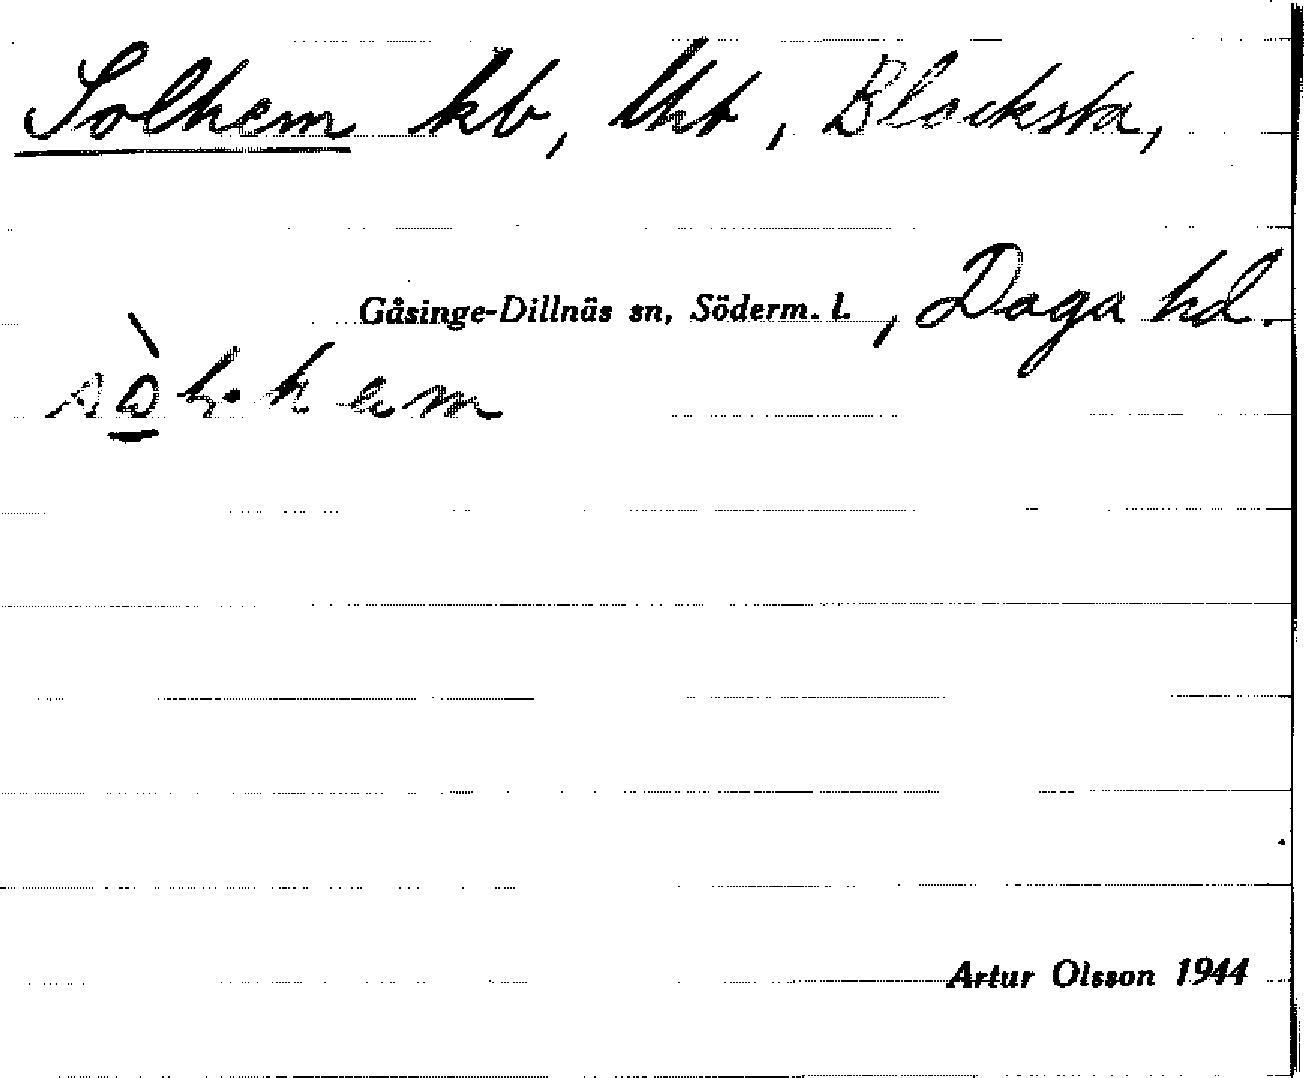 Solhem kb, lht, Blacksta,
Gåsinge-Dillnäs sn, Söderm. l., Daga hd.
Artur Olsson 1944